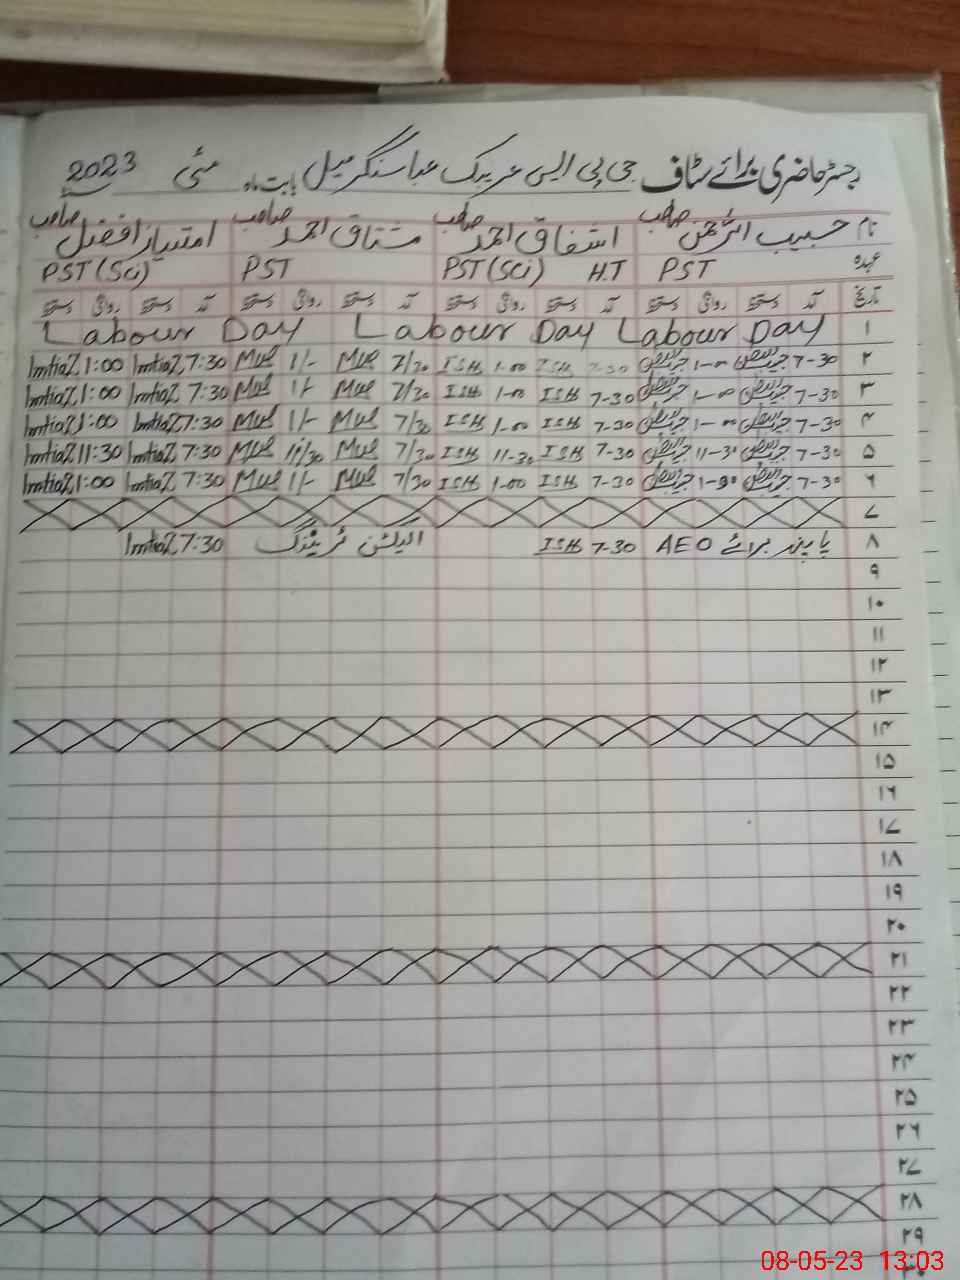 رجسٹر حاضری برائے سٹاف جی پی ایس عباسنگر میل بابت ماہ مئی 2023
نام حبیب الرحمن صاحب اشفاق احمد صاحب مشتاق احمد صاحب امتیاز افضل صاحب
عہدہ PST PST(Sci) H.T PST PST(Sci)
تاریخ آمد دستخط روانگی دستخط آمد دستخط روانگی دستخط آمد دستخط روانگی دستخط آمد دستخط روانگی دستخط
۱ Labour Day Labour Day Labour Day
۲ 7-30 1-00 ISH 1-00 ISH 7/30 Mue 1/- Mue 7:30 Imtiaz 1:00 Imtiaz
۳ 7-30 1-00 7-30 ISH 1-00 ISH 7/30 Mue 1/- Mue 7:30 Imtiaz 1:00 Imtiaz
۴ 7-30 1-00 7-30 ISH 1-00 ISH 7/30 Mue 1/- Mue 7:30 Imtiaz 1:00 Imtiaz
۵ 7-30 11-30 7-30 ISH 11-30 ISH 7/30 Mue 11/30 Mue 7:30 Imtiaz 11:30 Imtiaz
۶ 7-30 7-30 ISH 1-00 ISH 7/30 Mue 1/- Mue 7:30 Imtiaz 1:00 Imtiaz
۷
۸ برائے AEO 7-30 ISH الیکشن ٹریننگ 7:30 Imtiaz
۹
۱۰
۱۱
۱۲
۱۳
۱۴
۱۵
۱۶
۱۷
۱۸
۱۹
۲۰
۲۱
۲۲
۲۳
۲۴
۲۵
۲۶
۲۷
۲۸
۲۹
۳۰
08-05-23 13:03